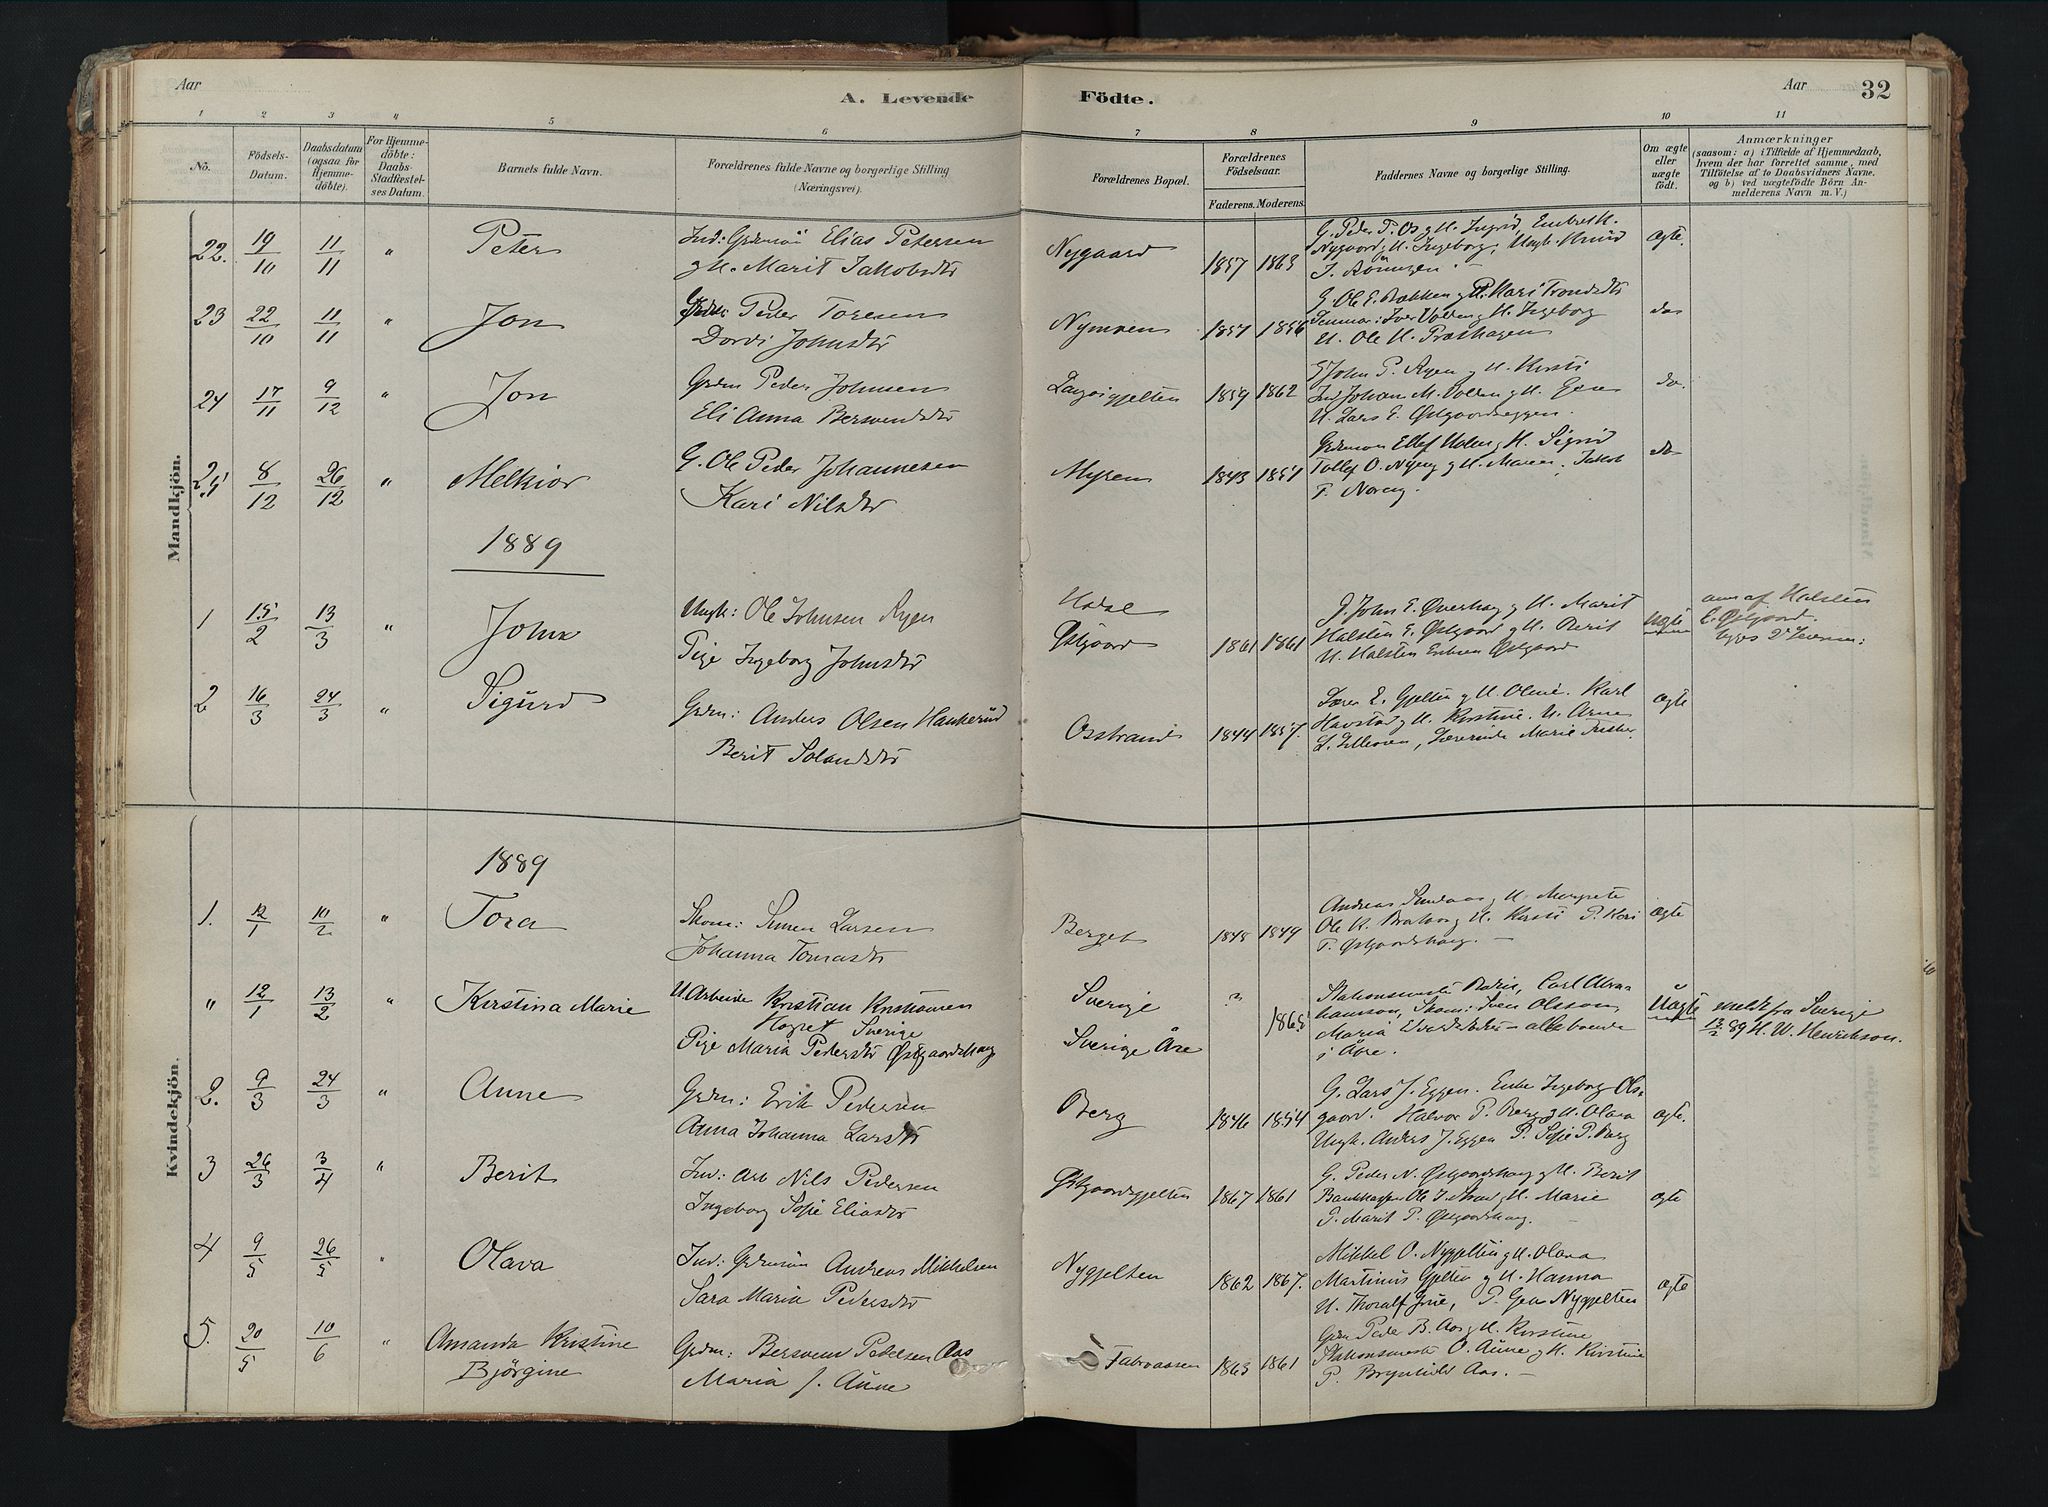 Aar
A. Levende Födte.
Aar 32
1 2 3 4 5 6 7 8 9 10 11
No.
Födsels-Datum.
Daabsdatum (ogsaa for Hjemme-döbte).
For Hjemme-döbte: Daabs-Stadfæstel-ses Datum.
Barnets fulde Navn.
Forældrenes fulde Navne og borgerlige Stilling (Næringsvei).
Forældrenes Bopæl.
Forældrenes Födselsaar.
Faderens. Moderens.
Faddernes Navne og borgerlige Stilling.
Om ægte eller uægte födt.
Anmærkninger
(saasom: a) i Tilfælde af Hjemmedaab, hvem der har forrettet samme, med Tilföielse af to Daabsvidners Navne, og b) ved uægtefödte Börn An-melderens Navn m. V.)
Mandkjön.
22. 19/10 11/11 " Peter
Ind: Grdmsön Elias Petersen
g H. Marit Jakobsdtr
Nygaard 1857 1863
G. Peder P. Os g H. Ingrid, Embret H.
Nygaard g H. Ingeborg; Ungk. Knud
ægte.
23 22/10 11/11 " Jon
Grdm: Peder Toresen
Dordi Johnsdtr
Nymoen 1857 1856
G. Ole E. Bakken g H. Kari Trondsdtr
Iver Volden g H. Ingeborg
U. Ole H. Præsthagen
do
24 17/11 9/12 " Jon
Grdm Peder Johnsen
Eli Anna Bersvendsdtr
1859 1862
G John P. Ryen g H. Kirsti
Ind Johan M. Volden g H.
U. Lars E. Østgaardseggen.
do.
25 8/12 26/12 " Melkior
G. Ole Peder Johannesen
Kari Nilsdtr
Myren 1843 1851
g H. Sigrid
Tollef O. Nyeng g H. Maren, Jakob
P. Noreng.
do
1889
1 15/2 13/3 " John
Ungk: Ole Johnsen Ryen
Pige Ingeborg Johnsdtr
Østgaard 1861 1861
G. John E. Øverhaug g H. Marit
Halsten E. Østgaard g H. Berit
U. Halsten Eriksen Østgaard
uægte
anm af Halsten
E. Østgaard.
2 16/3 24/3 " Sigurd
Grdm: Anders Olsen Hankerud
Berit Tolandsdtr
Osstrand 1844 1857.
E. Gjelten g H. Oline. Karl
Havstad g H. Kirstine. U. Arne
L. Lilleven, Severinde Marie
ægte
Kvindekjön.
1889
1. 12/1 10/2 " Tora
Skom: Simen Larsen
Johanna Tomasdtr
Berget 1848 1849
Andreas Sundaas g H. Margrete
Ole K. Brahaug g H. Kirsti P. Kari
T. Østgaardshaug. –
ægte
" 12/1 13/2 " Kirstina Marie
U. Arbeider Kristian Kristiansen
Sverige
Pige Maria Pedersdtr Østgaardshaug
Sverige
Sverige Åre
? 1865
Stationsmester Carl Abra-
hamson, Skom: Sven Olsson,
Maria – alle boende
i Åre.
Uægte
meldt fra Sverige
13/2 89 H. W. Henrikson.
2. 9/3 24/3 " Anne
Grdm: Erik Pedersen
Anna Johanna Larsdtr
Berg 1846 1854
G. Lars J. Eggen. Enke Ingeborg Øst-
gaard. Halvor P. Berg g H. Olava
Ungk. Anders J. Eggen P. Sofie P. Berg
ægte.
3 26/3 3/4 " Berit
Ind: Arb Nils Pedersen
Ingeborg Sofie Eliasdtr
Østgaardsgjelten 1867 1861
G. Peder N. Østgaardshaug g H. Berit
Ole J. g H. Marie
P. Marit P. Østgaardshaug. –
ægte
4 9/5 26/5 " Olava
Ind: Grdmsön Andreas Mikkelsen
Sara Maria Pedersdtr
Nygjelten 1862 1867.
Mikkel O. Nygjelten g H. Olava
Martinus Gjelten g H. Hanna
U. Thoralf P. Nygjelten
ægte
5. 20/5 10/6 " Amanda Kristine
Bjørgine
Grdm: Bersvend Pedersen Aas
Maria J. Aune
1863 1861
Grdm Peder B. Aas g H. Kirstine
Stationsmester O. Aune g H. Kirstine
P. Brynhild Aas. –